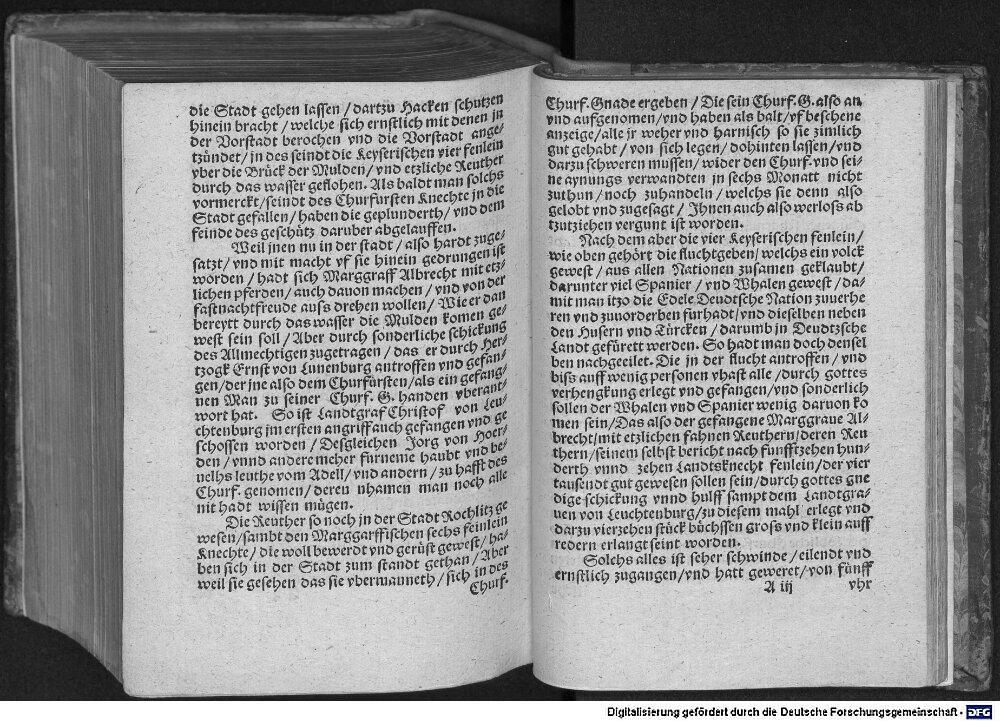 die Stadt gehen lassen / dartzu Hacken schutzen
hinein bracht / welche sich ernstlich mit denen jn
der Vorstadt berochen vnd die Vorstadt ange-
tzündet / jn des seindt die Keyserischen vier fenlein
vber die Brück der Mulden / vnd etzliche Reuther
durch das wasser geflohen. Als baldt man solchs
vormerckt / seindt des Churfürsten Knechte jn die
Stadt gefallen / haben die geplunderth / vnd dem
feinde des geschütz daruber abgelauffen.
Weil jnen nu in der stadt / also hardt zuge-
satzt / vnd mit macht vf sie hinein gedrungen ist
worden / hadt sich Marggraff Albrecht mit etz-
lichen pferden / auch dauon machen / vnd von der
fastnachtfreude auss drehen wollen / Wie er dan
bereytt durch das wasser die Mulden komen ge-
west sein soll / Aber durch sonderliche schickung
des Allmechtigen zugetragen / das er durch Her-
tzogk Ernst von Lunenburg antroffen vnd gefan-
gen / der jne also dem Churfürsten / als ein gefang-
nen Man zu seiner Churf. G. handen vberant-
wort hat. So ist Landtgraf Christof von Leu-
chtenburg jm ersten angriff auch gefangen vnd ge
schossen worden / Desgleichen Jorg von Hoer-
den / vnnd andere meher fürneme haubt vnd be-
uelhs leuthe vom Adell / vnd andern / zu hafft des
Churf. genomen / deren nhamen man noch alle
nit hadt wissen mügen.
Die Reuther so noch jn der Stadt Rochlitz ge
wesen / sambt den Marggarffischen sechs feinlein
Knechte / die woll bewerdt vnd gerüst gewest / ha-
ben sich in der Stadt zum standt gethan / Aber
weil sie gesehen das sie vbermanneth / sich in des
Churf.
Churf. Gnade ergeben / Die sein Churf. G. also an
vnd aufgenomen / vnd haben als balt / vf beschene
anzeige / alle jr weher vnd harnisch so sie zimlich
gut gehabt / von sich legen / dohinten lassen / vnd
darzu schweren mussen / wider den Churf. vnd sei-
ne aynungs verwandten jn sechs Monatt nicht
zuthun / noch zuhandeln / welchs sie denn also
gelobt vnd zugesagt / Ihnen auch also werloss ab
tzutziehen vergunt ist worden.
Nach dem aber die vier Keyserischen fenlein /
wie oben gehört die fluchtgeben / welchs ein volck
gewest / aus allen Nationen zusamen geklaubt /
darunter viel Spanier / vnd Whalen gewest / da-
mit man itzo die Edele Deudtsche Nation zuuerhe
ren vnd zuuorderben fürhadt / vnd dieselben neben
den Husern vnd Türcken / darumb jn Deudtzsche
Landt gefürett werden. So hadt man doch densel
ben nachgeeilet. Die jn der flucht antroffen / vnd
biss auff wenig personen vhast alle / durch gottes
verhengkung erlegt vnd gefangen / vnd sonderlich
sollen der Whalen vnd Spanier wenig daruon ko
men sein / Das also der gefangene Marggraue Al-
brecht / mit etzlichen fahnen Reuthern / deren Reu
thern / seinem selbst bericht nach funfftzehen hun-
derth vnnd zehen Landtsknecht fenlein / der vier
tausendt gut gewesen sollen sein / durch gottes gne
dige schickung vnnd hulff sampt dem Landtgra-
uen von Leuchtenburg / zu diesem mahl erlegt vnd
darzu vierzehen stück büchssen gross vnd klein auff
redern erlangt seint worden.
Solchs alles ist seher schwinde / eilendt vnd
ernstlich zugangen / vnd hatt geweret / von fünff
A iij vhr
Digitalisierung gefördert durch die Deutsche Forschungsgemeinschaft - DFG